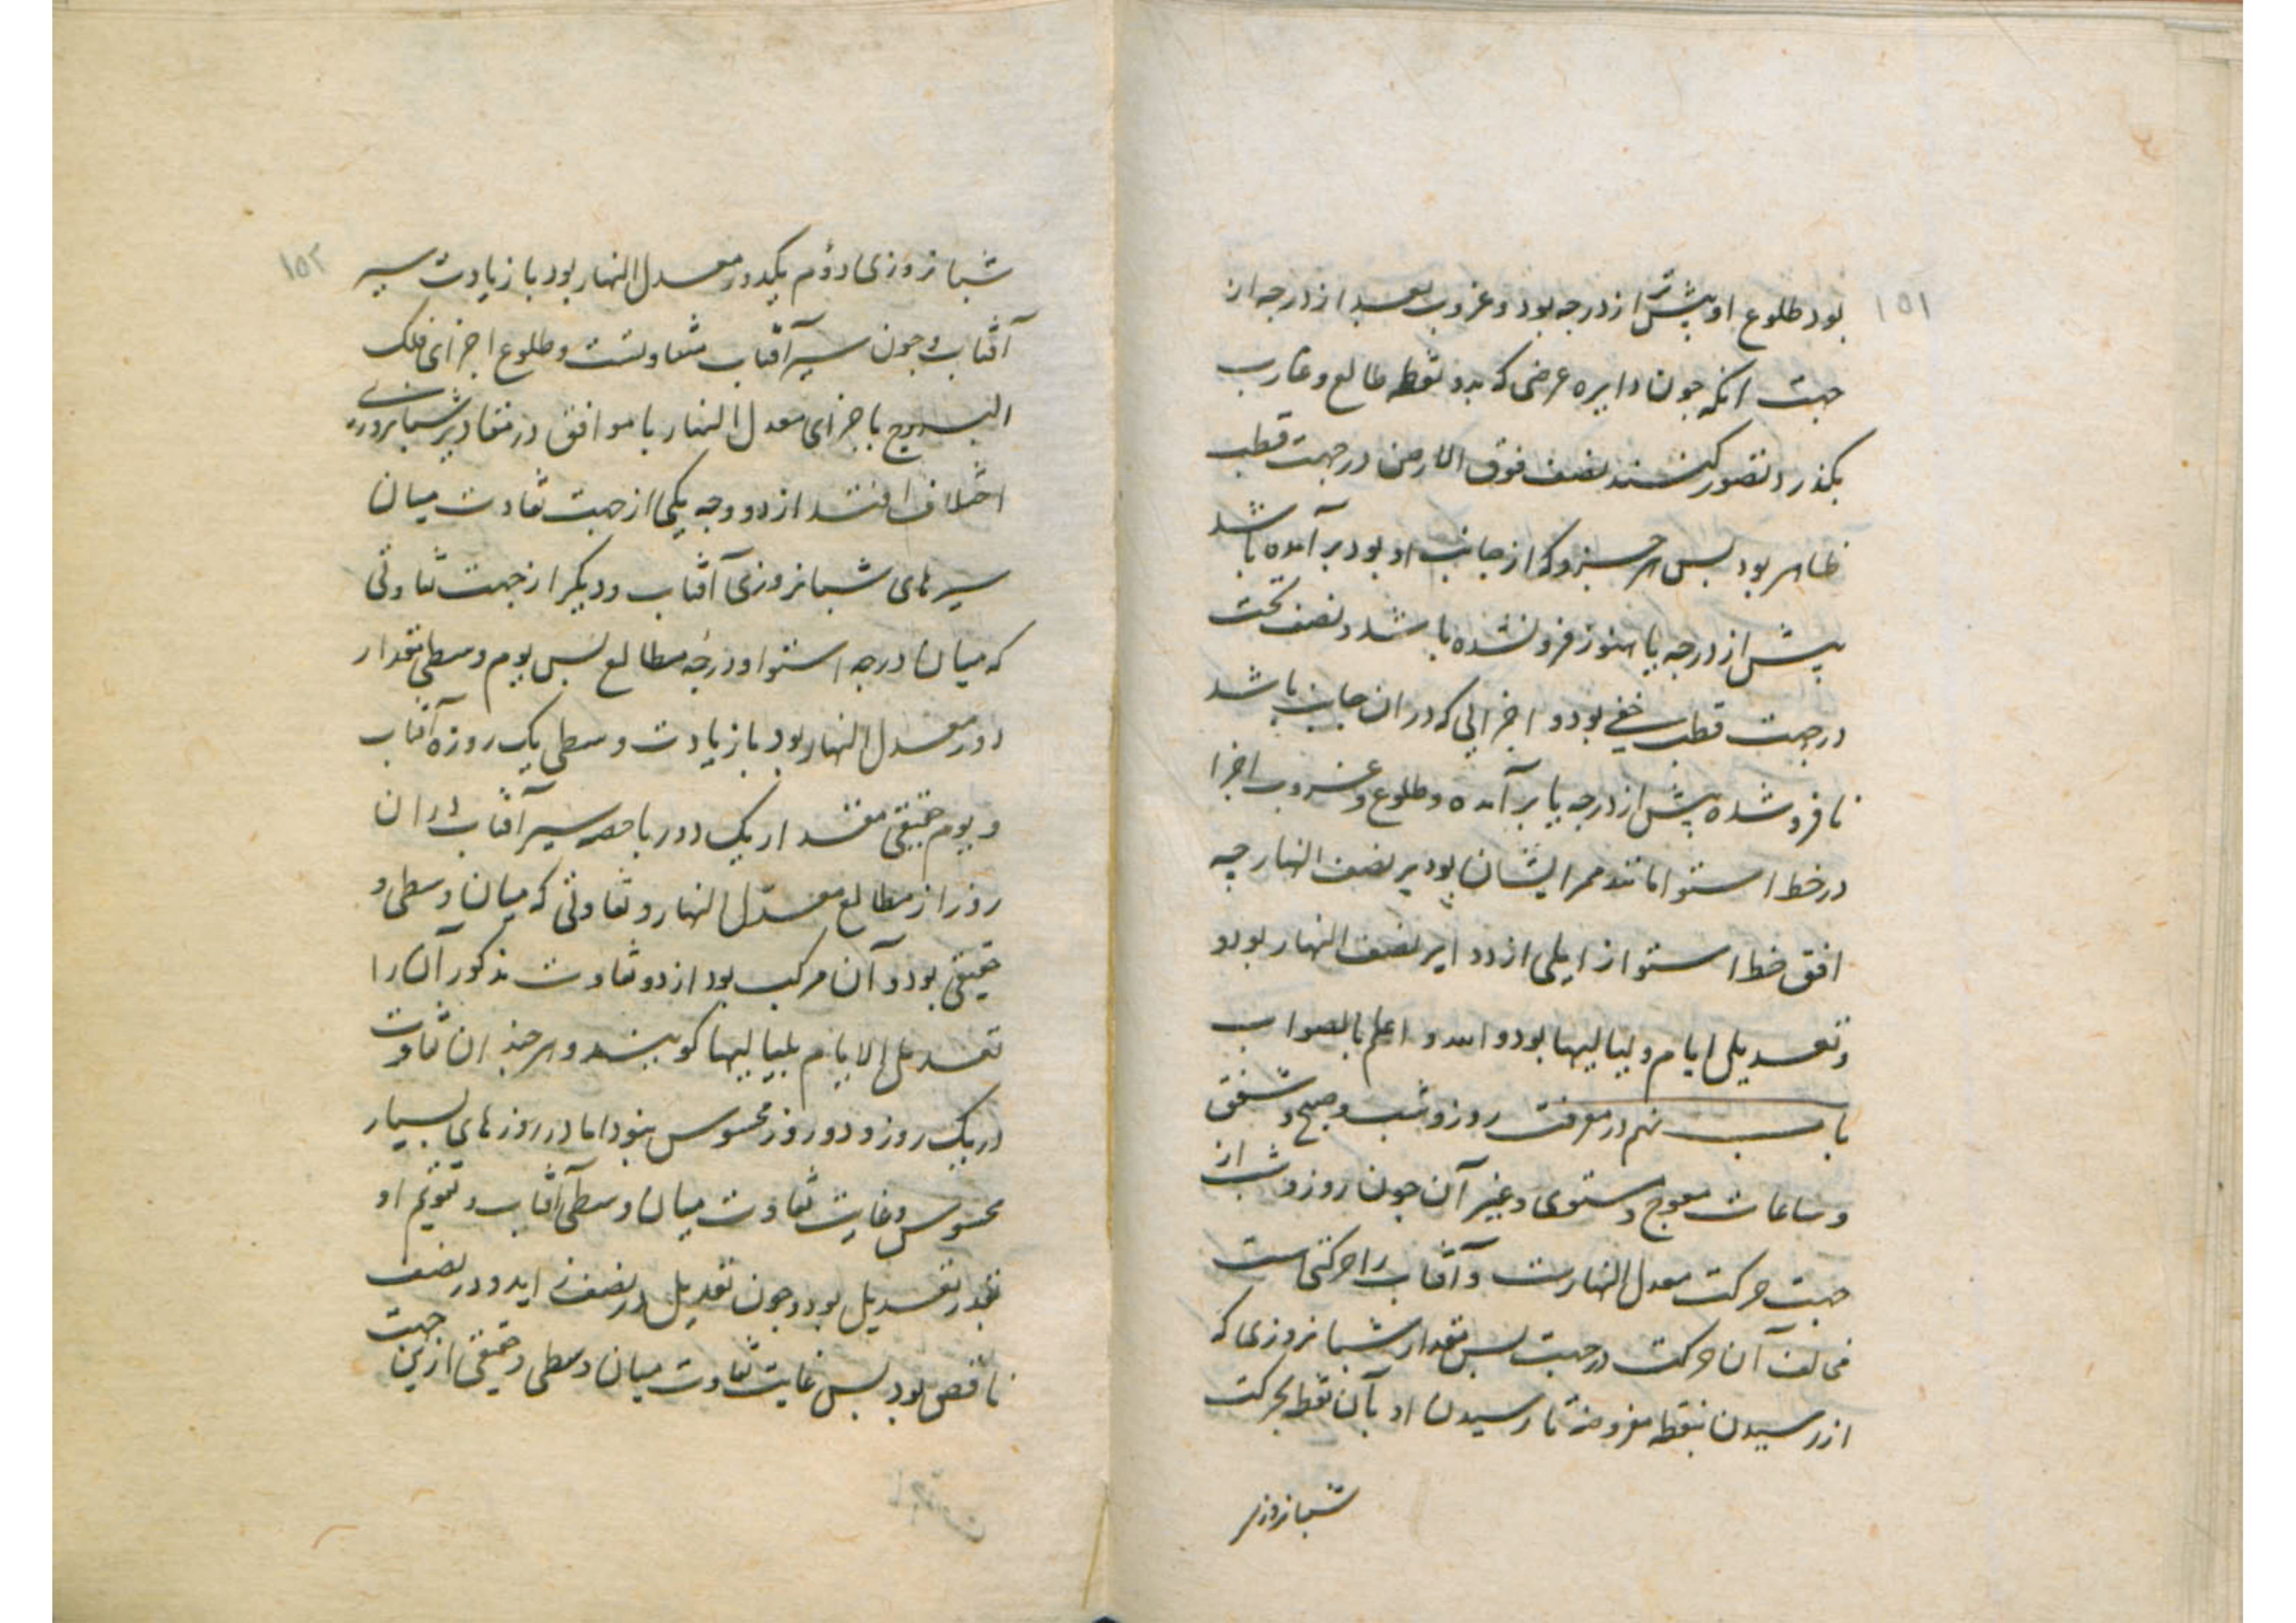 ۱۵۱
بود طلوع او پیشتر از درجه بود و غروب بعد از درجه از
جهت انکه چون دایره عرضی که بدو نقطه طالع و غارب
بکذرد تصور کنند نصف فوق الارض در جهت قطب
ظاهر بود بس هر جزو که از جانب او بود برآمده باشد
پیش از درجه یا هنوز فرو نشده باشد و نصف تحت
در جهت قطب خفی بود و اجزایی که در ان جانب باشد
نا فرو شده پیش از درجه یا برآمده و طلوع و غروب اجزا
در خط استوا مانند ممر ایشان بود بر نصف النهار چه
افق خط استوا از ایلی از دوایر نصف النهار بود و
و تعدیل ایام و لیالیها بود و الله و اعلم بالصواب
باب نهم در معرفت روز و شب و صبح و شفق
و ساعات معوج و مستوی و غیر آن چون روز و شب از
جهت حرکت معدل النهارست و آفتاب را حرکتی است
مخالف آن حرکت در جهت بس مقدار شبانروزی که
از رسیدن بنقطه مفروضه تا رسیدن او بآن نقطه بحرکت
شبانروزی
۱۵۲
شبانروزی دوم یکدور معدل النهار بود با زیادت سیر
آفتاب و چون سیر آفتاب متفاوتست و طلوع اجزای فلک
البروج با جزای معدل النهار نا موافق در مقادیر شبانروزی
اختلاف افتد از دو وجه یکی از جهت تفاوت میان
سیرهای شبانروزی آفتاب و دیکر از جهت تفاوتی
که میان درجه استوا و درجه مطالع بس یوم وسطی مقدار
دور معدل النهار بود با زیادت وسطی یک روزه آفتاب
و یوم حقیقی مقدار یک دور با حصه سیر آفتاب در ان
روز از مطالع معدل النهار و تفاوتی که میان وسطی و
حقیقی بود و آن مرکب بود از دو تفاوت مذکور آن را
تعدیل الایام بلیالیها کویند و هر چند ان تفاوت
در یک روز و دو روز محسوس نبود اما در روزهای بسیار
محسوس و غایت تفاوت میان وسطی آفتاب و تقویم او
بقدر تعدیل بود و چون تعدیل در نصف زاید و در نصف
ناقص بود بس غایت تفاوت میان وسطی و حقیقی ازین جهت